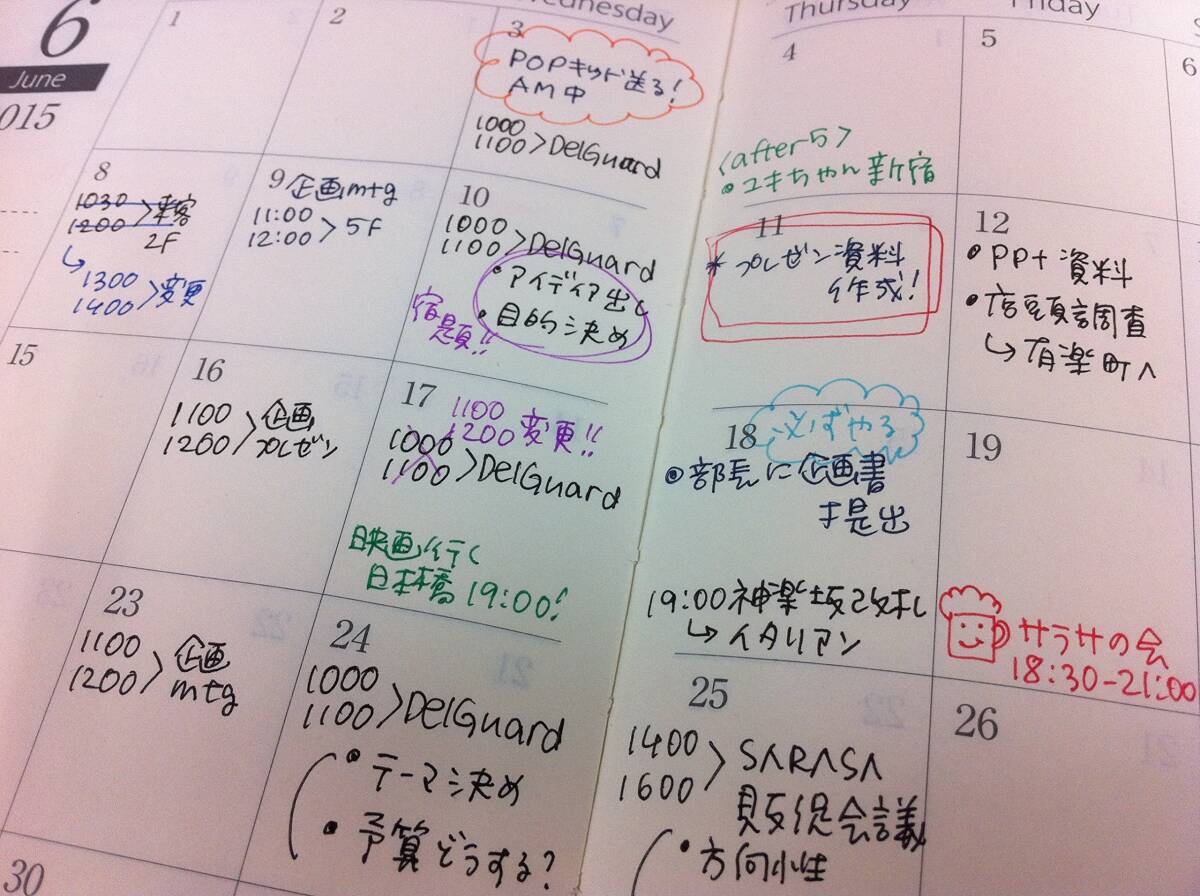 6
June
015
Wednesday
Thursday
Friday
1
2
3
POPキット送る!
AM中
1000
1100>DelGuard
4
<after5>
・ユキちゃん新宿
5
6
8
1030
1200>来客
2F
↳1300
1400>変更
9 企画mtg
11:00
12:00>5F
10
1000
1100>DelGuard
・アイディア出し
・目的決め
宿題!!
11
*プレゼン資料
作成!
12
・PPt資料
・店頭調査
↳有楽町へ
15
16
1100
1200>企画
プレゼン
17
1100
1200変更!!
1000
1100>DelGuard
映画行く
日本橋19:00!
18
必ずやる
◎部長に企画書
提出
19:00神楽坂改札
↳イタリアン
19
サラサの会
18:30-21:00
23
1100
1200>企画
mtg
24
1000
1100>DelGuard
・テーマ決め
・予算どうする?
25
1400
1600>SARASA
販促会議
・方向性
26
30